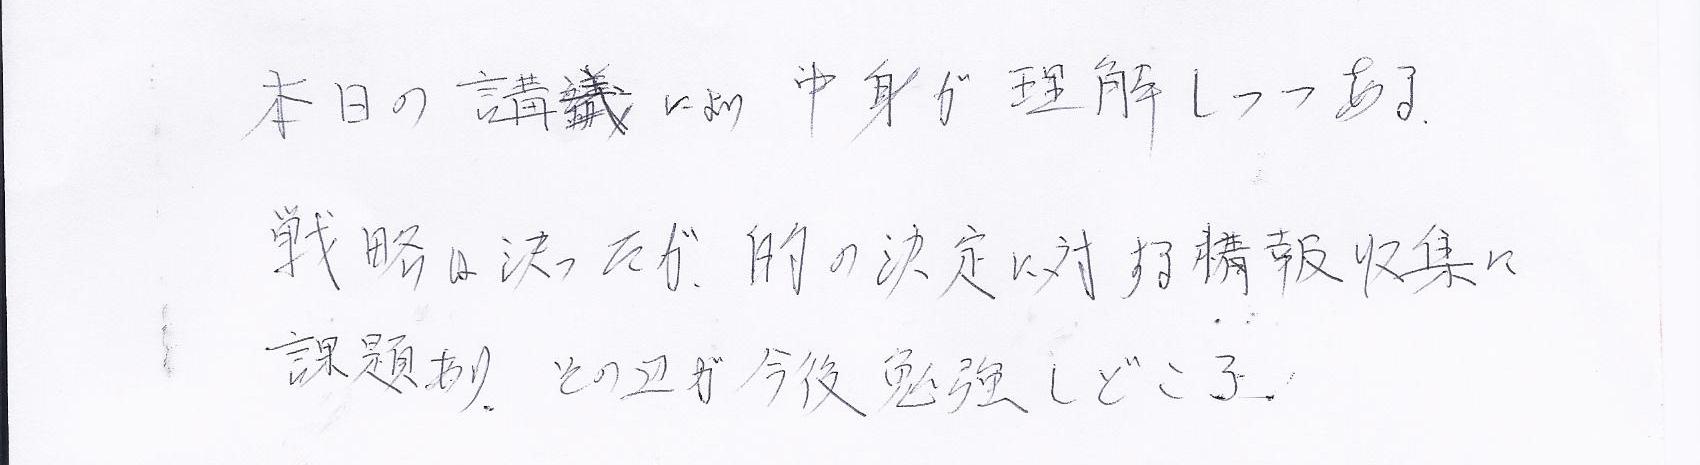 本日の講義により中身が理解しつつある.
戦略は決ったが、的の決定に対する情報収集に
課題あり. その辺が今後勉強しどころ.